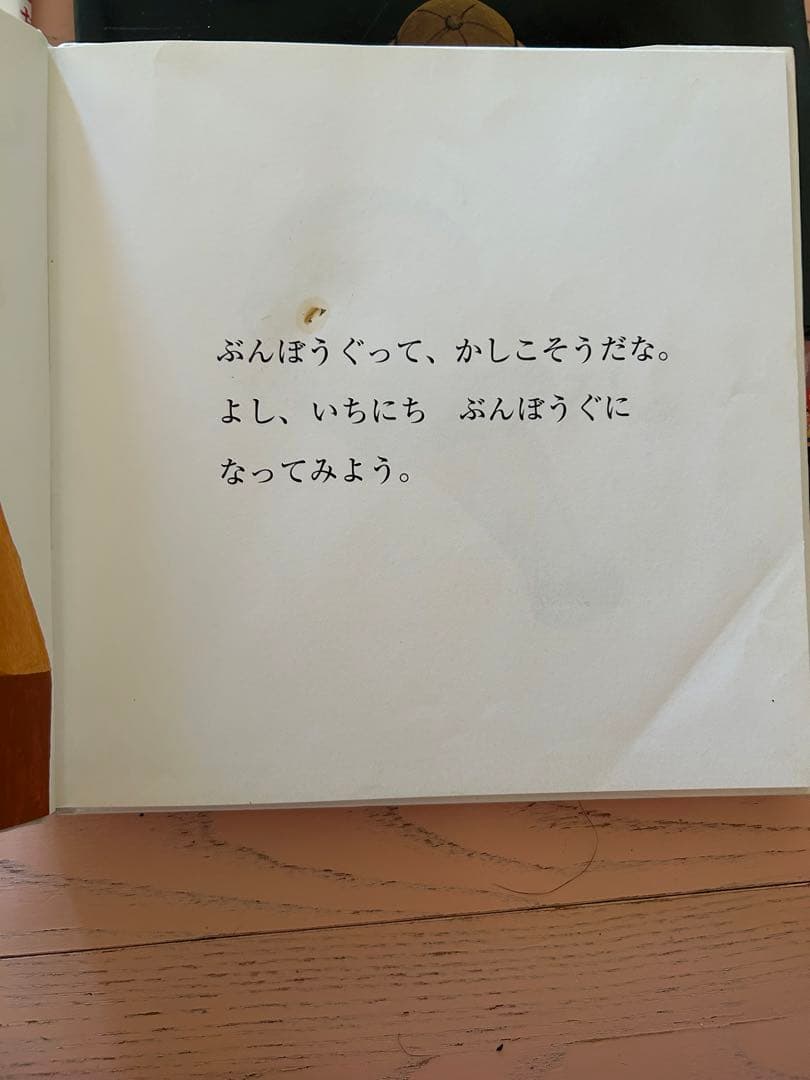 ぶんぼうぐって、かしこそうだな。
よし、いちにち　ぶんぼうぐに
なってみよう。